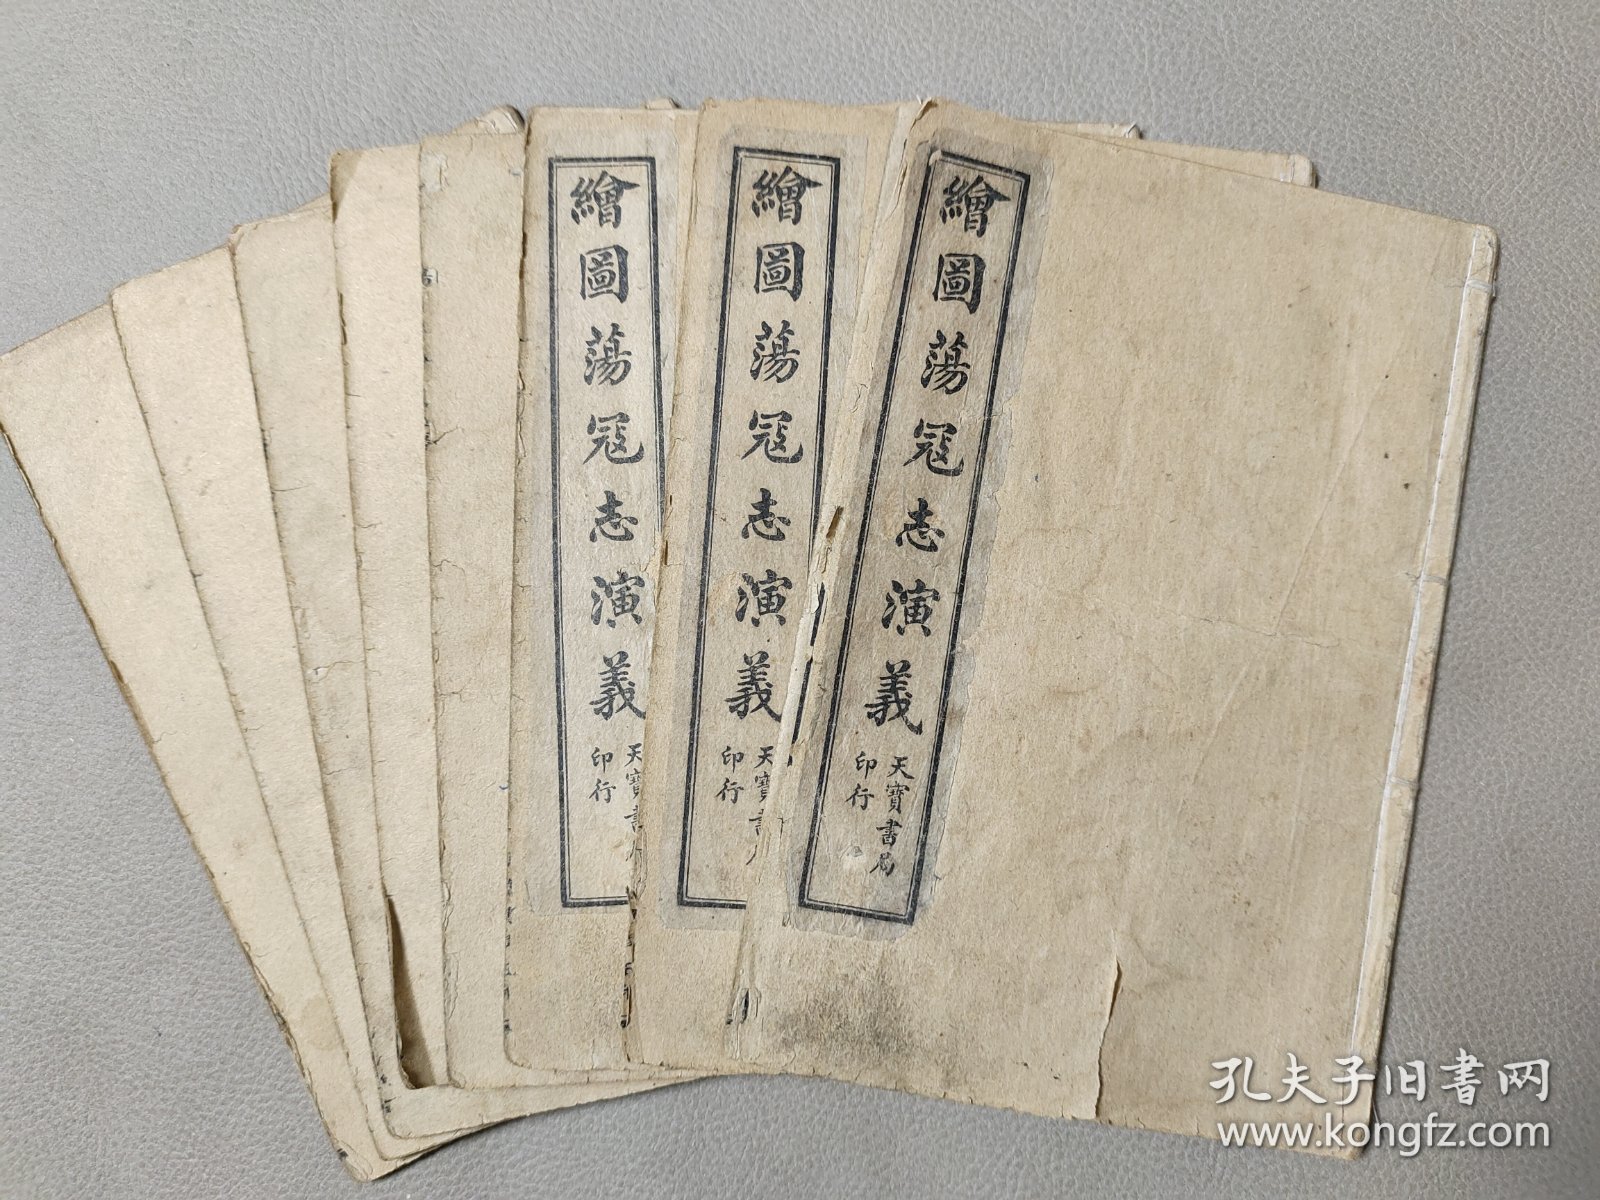 繪圖蕩冦志演義
天寶書局
印行
繪圖蕩冦志演義
天寶書
印行
繪圖蕩冦志演義
天寶書
印行
孔夫子旧书网
www.kongfz.com